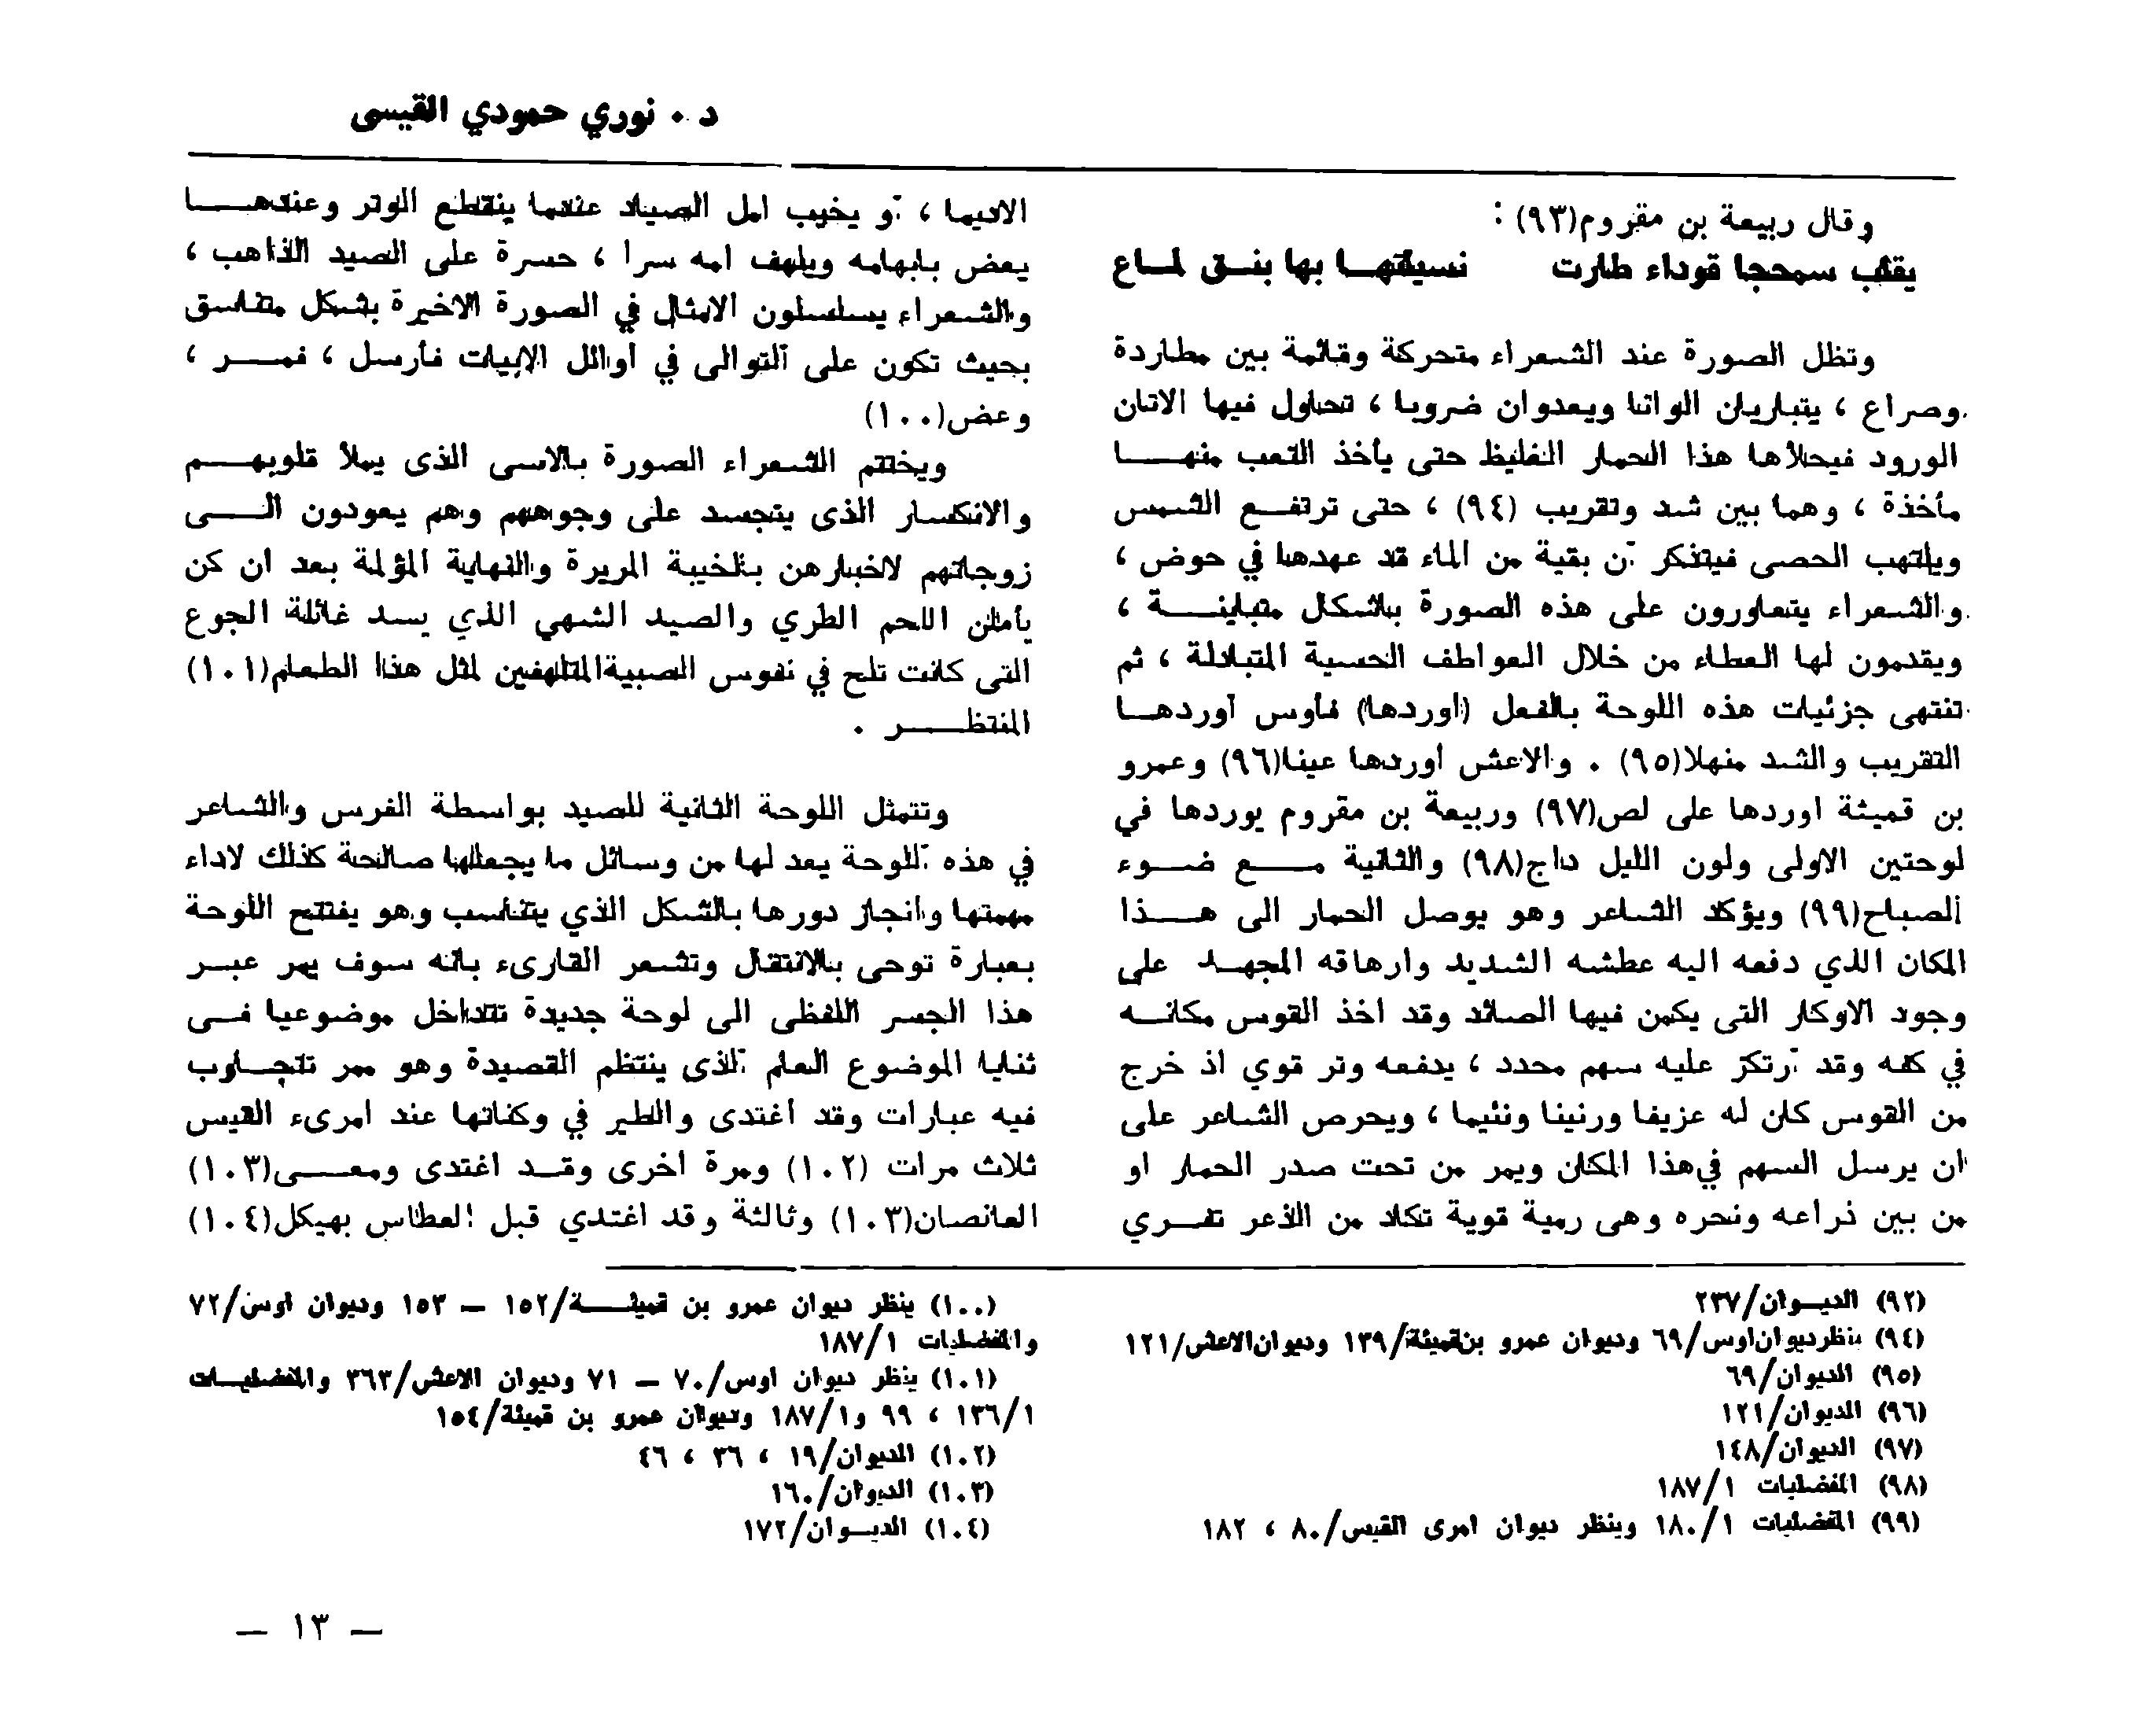 د . نوري حمودي القيسى
وقال ربيعة بن مقروم(٩٣) :
يقلب سمحجا قوداء طارت نسيلتهـا بها بنـق لمـاع
وتظل الصورة عند الشعراء متحركة وقائمة بين مطاردة
وصراع ، يتباريان الواتا ويعدوان ضروبا ، تحاول فيها الاتان
الورود فيحلأها هذا الحمار الغليظ حتى يأخذ التعب منهـــا
مأخذة ، وهما بين شد وتقريب (٩٤) ، حتى ترتفـع الشمس
ويلتهب الحصى فيتذكر أن بقية من الماء قد عهدها في حوض ،
والشعراء يتعاورون على هذه الصورة باشكال متباينـــة ،
ويقدمون لها العطاء من خلال العواطف الحسية المتبادلة ، ثم
تنتهى جزئيات هذه اللوحة بالفعل (اوردها) فأوس أوردهــا
التقريب والشد منهلا(٩٥) . والاعش اوردها عينا(٩٦) وعمرو
بن قميئة اوردها على لص(٩٧) وربيعة بن مقروم يوردها في
لوحتين الاولى ولون الليل داج(٩٨) والثانية مـــع ضــوء
الصباح(٩٩) ويؤكد الشاعر وهو يوصل الحمار الى هــذا
المكان الذي دفعه اليه عطشه الشديد وارهاقه المجهـد على
وجود الاوكار التى يكمن فيها الصائد وقد اخذ القوس مكانـه
في كفه وقد أرتكز عليه سهم محدد ، يدفعه وتر قوي اذ خرج
من القوس كان له عزيفا ورنينا ونئيما ، ويحرص الشاعر على
ان يرسل السهم في هذا المكان ويمر من تحت صدر الحمار او
من بين ذراعه ونحره وهى رمية قوية تكاد من الذعر تفـري
الاديما ، أو يخيب امل الصياد عندما ينقطع الوتر وعندهـــا
يعض بابهامه ويلهف امه سرا ، حسرة على الصيد الذاهب ،
والشعراء يسلسلون الامثال في الصورة الاخيرة بشكل متناسق
بحيث تكون على التوالى في أوائل الابيات فأرسل ، فمـــر ،
وعض(١٠٠)
ويختتم الشعراء الصورة بالاسى الذى يملأ قلوبهـــم
والانكسار الذى يتجسد على وجوههم وهم يعودون الـــى
زوجاتهم لاخبارهن بالخيبة المريرة والنهاية المؤلمة بعد ان كن
يأملن اللحم الطري والصيد الشهي الذي يسد غائلة الجوع
التى كانت تلح في نفوس الصبية المتلهفين لمثل هذا الطعام(١٠١)
المنتظـــر .
وتتمثل اللوحة الثانية للصيد بواسطة الفرس والشاعر
في هذه اللوحة يعد لها من وسائل ما يجعلها صالحة كذلك لاداء
مهمتها وانجاز دورها بالشكل الذي يتناسب وهو يفتتح اللوحة
بعبارة توحى بالانتقال وتشعر القارىء بانه سوف يمر عبـر
هذا الجسر اللفظى الى لوحة جديدة تتداخل موضوعيا فـى
ثنايا الموضوع العام الذى ينتظم القصيدة وهو ممر تتجـاوب
فيه عبارات وقد اغتدى والطير في وكناتها عند امرىء القيس
ثلاث مرات (١٠٢) ومرة اخرى وقـد اغتدى ومعـــى(١٠٣)
العانصان(١٠٣) وثالثة وقد اغتدي قبل العطاس بهيكل(١٠٤)
(٩٢) الديـوان/٢٣٧
(٩٤) ينظر ديوان اوس/٦٩ وديوان عمرو بن قميئة/١٣٩ وديوان الاعش/١٢١
(٩٥) الديوان/٦٩
(٩٦) الديوان/١٢١
(٩٧) الديوان/١٤٨
(٩٨) المفضليات ١/١٨٧
(٩٩) المفضليات ١/١٨٠ وينظر ديوان امرى القيس/٨٠ ، ١٨٢
(١٠٠) ينظر ديوان عمرو بن قميئـــة/١٥٢ – ١٥٣ وديوان اوس/٧٢
والمفضليات ١/١٨٧
(١٠١) ينظر ديوان اوس/٧٠ – ٧١ وديوان الاعش/٣٦٣ والمفضليـات
١/١٣٦ ، ٩٩ و١/١٨٧ وديوان عمرو بن قميئة/١٥٤
(١٠٢) الديوان/١٩ ، ٣٦ ، ٤٦
(١٠٣) الديوان/١٦٠
(١٠٤) الديـوان/١٧٢
– ١٣ –